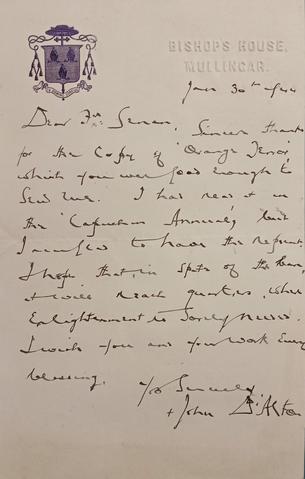 BISHOPS HOUSE,
MULLINGAR.
Jan 30th 1944
Dear Fr. Senan,
Sincere thanks
for the Copy of 'Orange Terror',
which you were good enough to
send me. I had read it in
the 'Capuchin Annual', but
I am glad to have the reprint.
I hope that, in spite of the ban,
it will reach quarters, where
Enlightenment is sorely needed.
I wish you and your work every
blessing.
Yrs Sincerely
+ John D'Alton